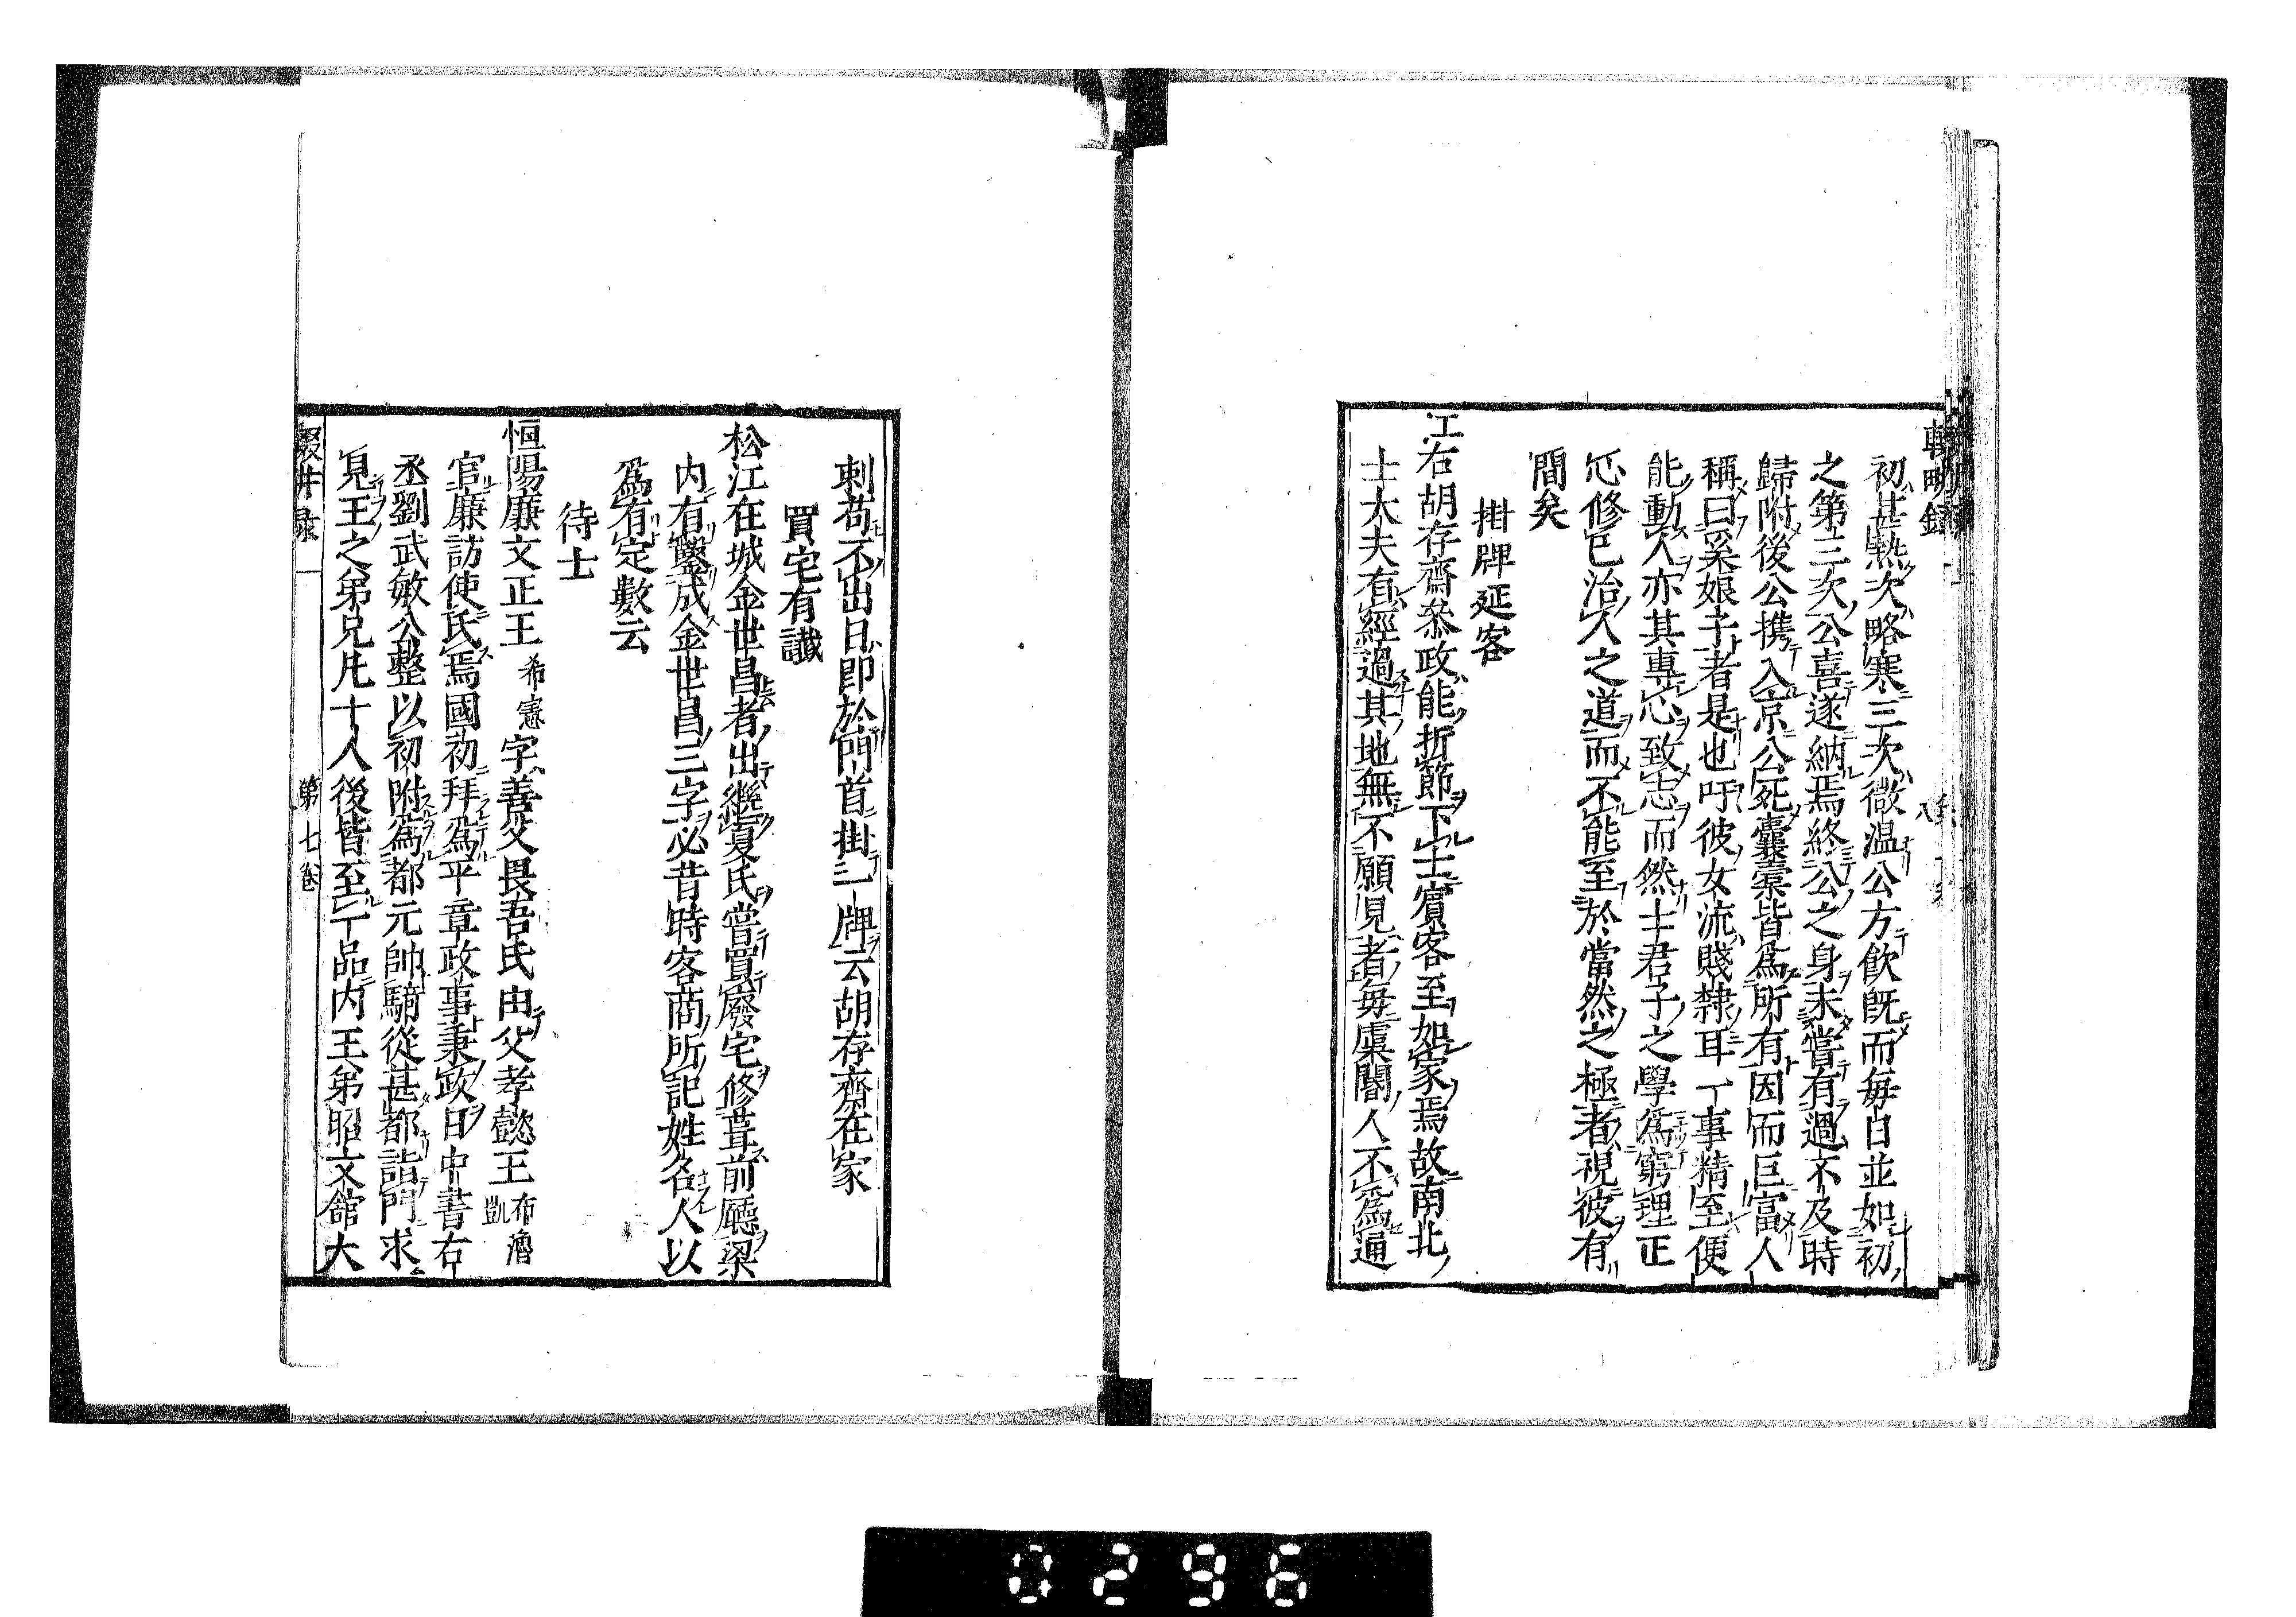 初甚熱次略寒三次微温公方飲既而毎日並如初
之第三次公喜遂納焉終公之身未嘗有過不及時
歸附後公携入京公死囊橐皆爲所有因而巨富人
稱曰奚娘子者是也吁彼女流賤隸耳一事精至便
能動人亦其專心致志而然士君子之學爲窮理正
心修己治人之道而不能至於當然之極者視彼有
間矣
掛牌延客
江右胡存齋叅政能折節下士賓客至如家焉故南北
士大夫有經過其地無不願見者毎虞閽人不爲通
刺苟不出日即於門首掛一牌云胡存齋在家
買宅有讖
松江在城金世昌者出繼夏氏嘗買廢宅修葺前廳梁
内有鑿成金世昌三字必昔時客商所記姓名人以
爲有定數云
待士
恒陽廉文正王希憲字善父畏吾氏由父孝懿王布魯凱
官廉訪使氏焉國初拜爲平章政事秉政日中書右
丞劉武敏公整以初附爲都元帥騶從甚都詣門求
見王之弟兄凡十人後皆至一品内王弟昭文舘大
輟耕录 第七卷